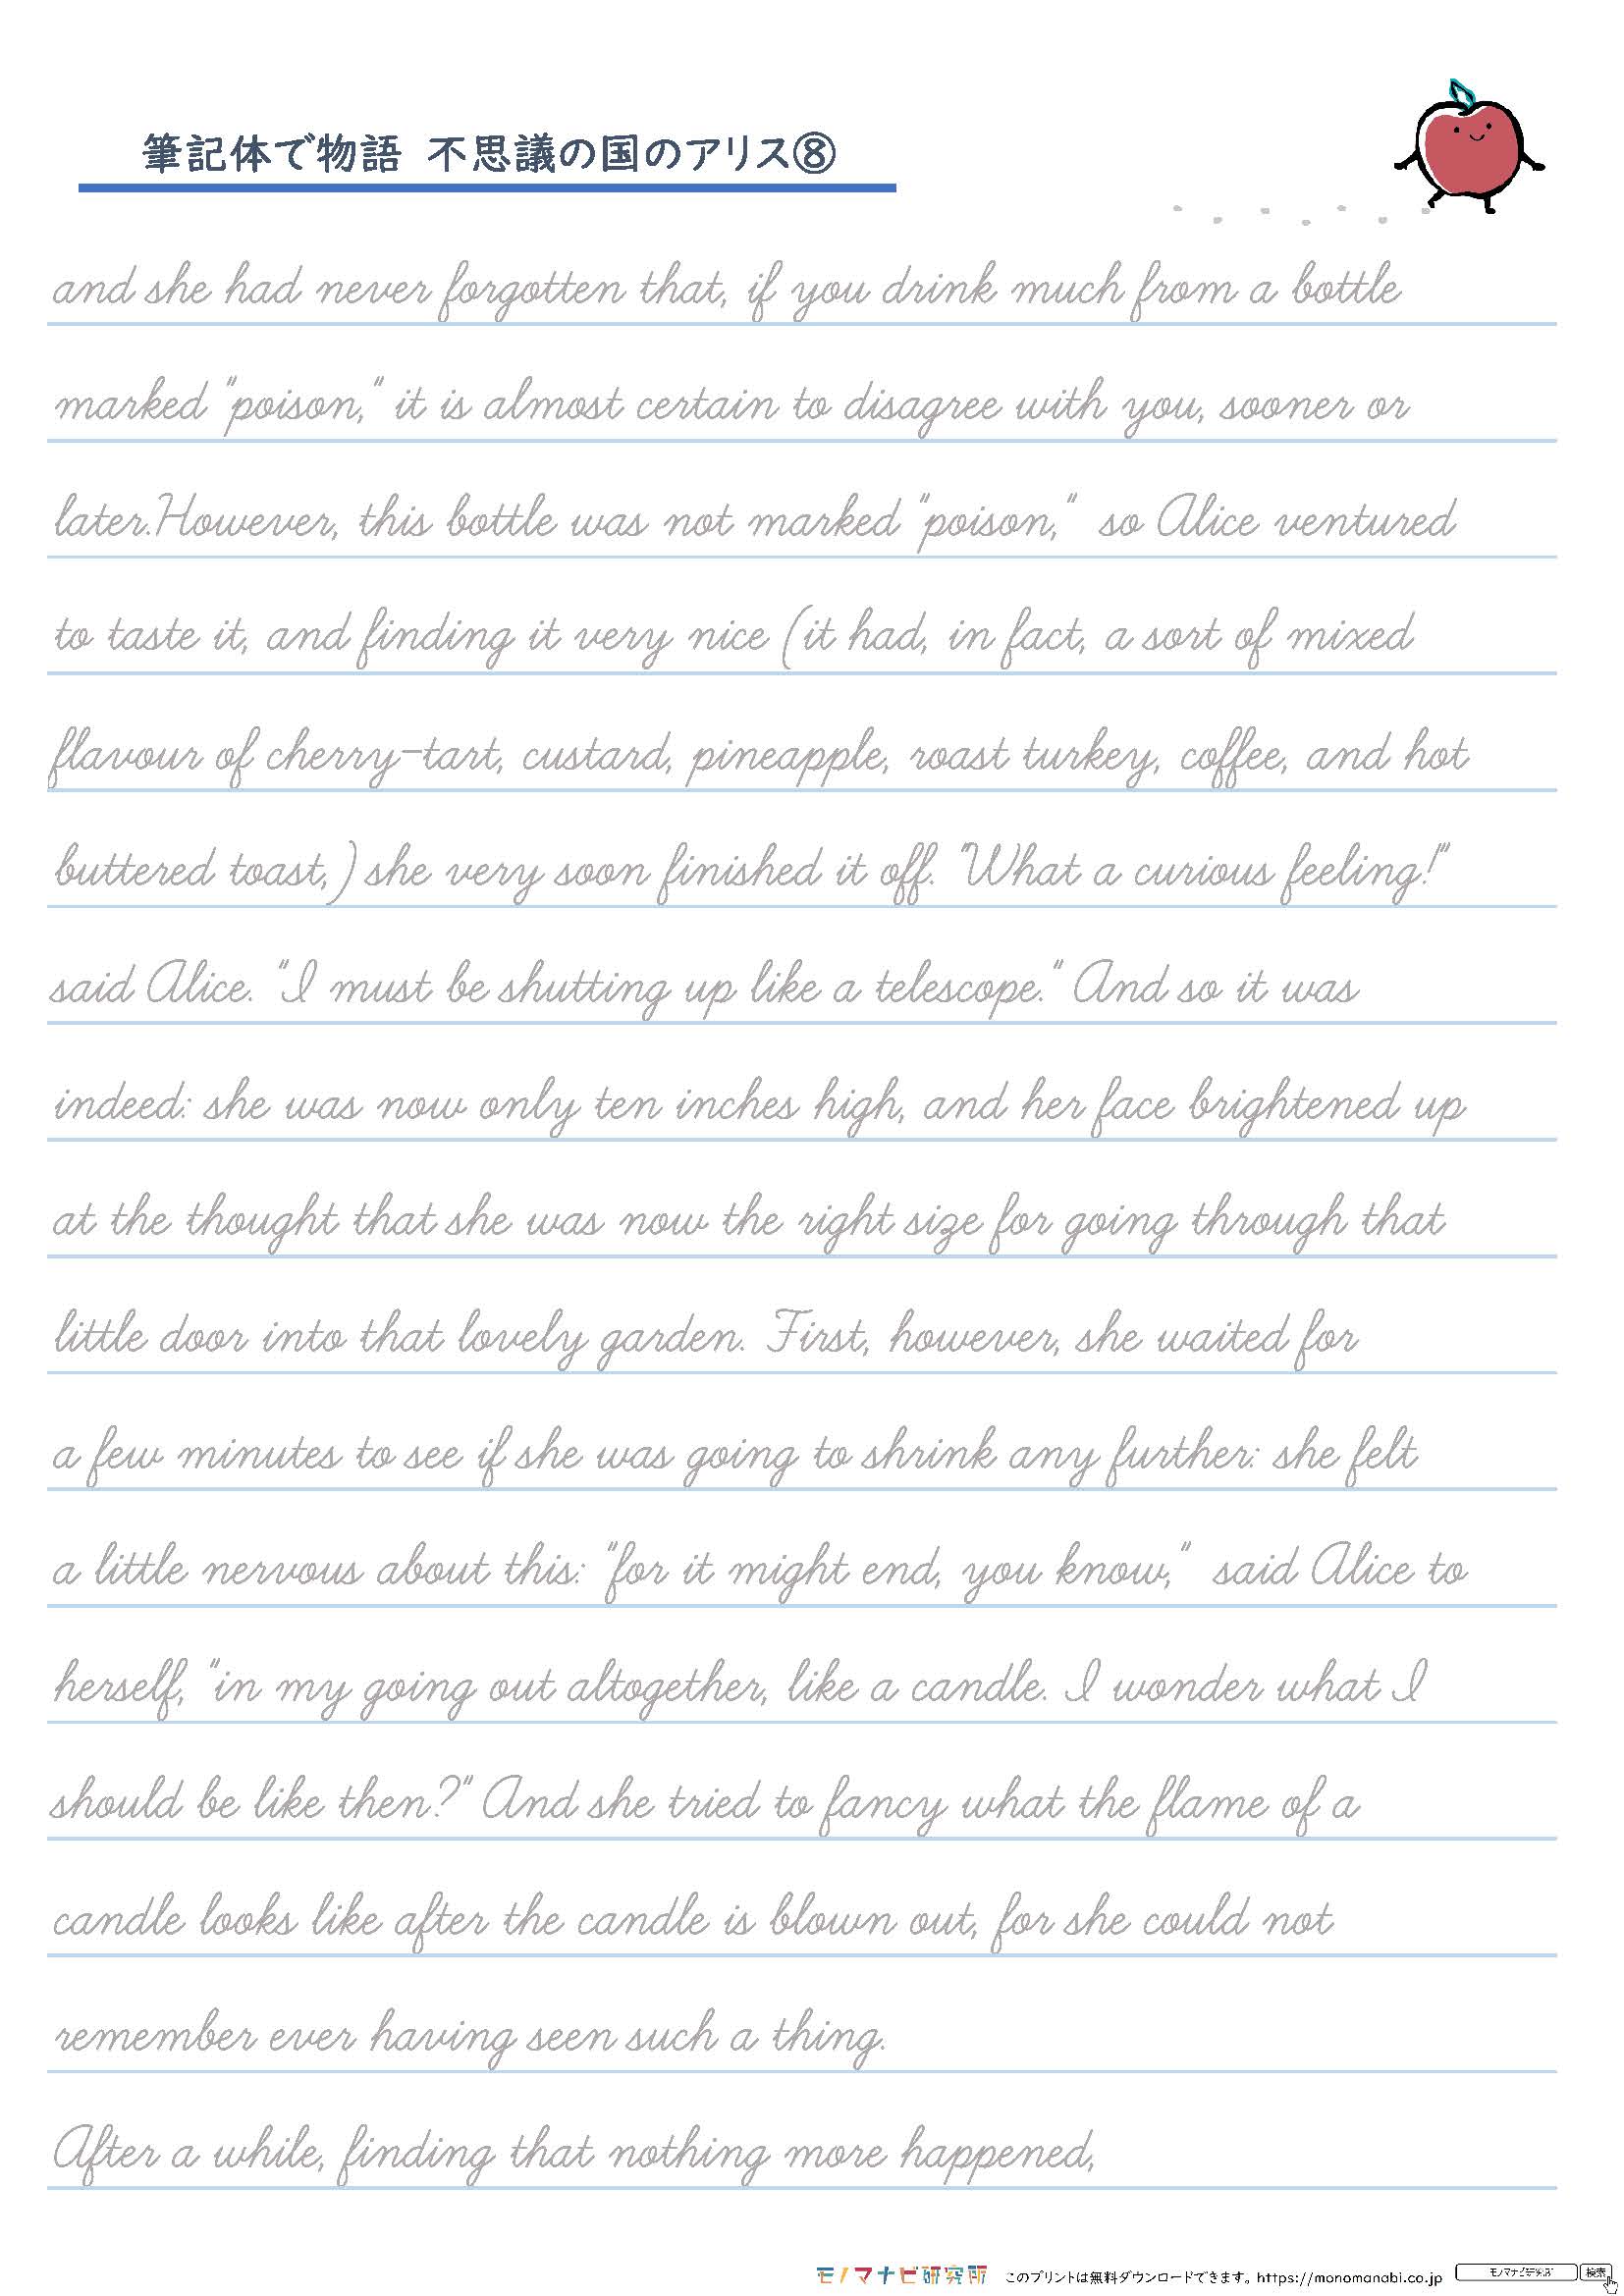 筆記体で物語 不思議の国のアリス⑧
and she had never forgotten that, if you drink much from a bottle
marked "poison," it is almost certain to disagree with you, sooner or
later.However, this bottle was not marked "poison," so Alice ventured
to taste it, and finding it very nice (it had, in fact, a sort of mixed
flavour of cherry-tart, custard, pineapple, roast turkey, coffee, and hot
buttered toast,) she very soon finished it off. "What a curious feeling!"
said Alice. "I must be shutting up like a telescope." And so it was
indeed: she was now only ten inches high, and her face brightened up
at the thought that she was now the right size for going through that
little door into that lovely garden. First, however, she waited for
a few minutes to see if she was going to shrink any further: she felt
a little nervous about this: "for it might end, you know," said Alice to
herself, "in my going out altogether, like a candle. I wonder what I
should be like then?" And she tried to fancy what the flame of a
candle looks like after the candle is blown out, for she could not
remember ever having seen such a thing.
After a while, finding that nothing more happened,
モノマナビ研究所 このプリントは無料ダウンロードできます。https://monomanabi.co.jp モノマナビ研究所 検索